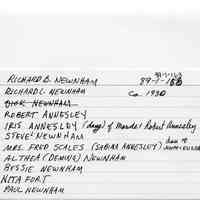 89-1-163
RICHARD B. NEWNHAM 89-7-
RICHARD L. NEWNHAM Ca. 1930
DICK NEWNHAM
ROBERT ANNESLEY
IRIS ANNESLEY of Robert Annesley
STEVE NEWNHAM
MRS. FRED SCALES (SABINA ANNESLEY)
ALTHEA (DEMUNA) NEWNHAM
BESSIE NEWNHAM
RITA FORT
PAUL NEWNHAM